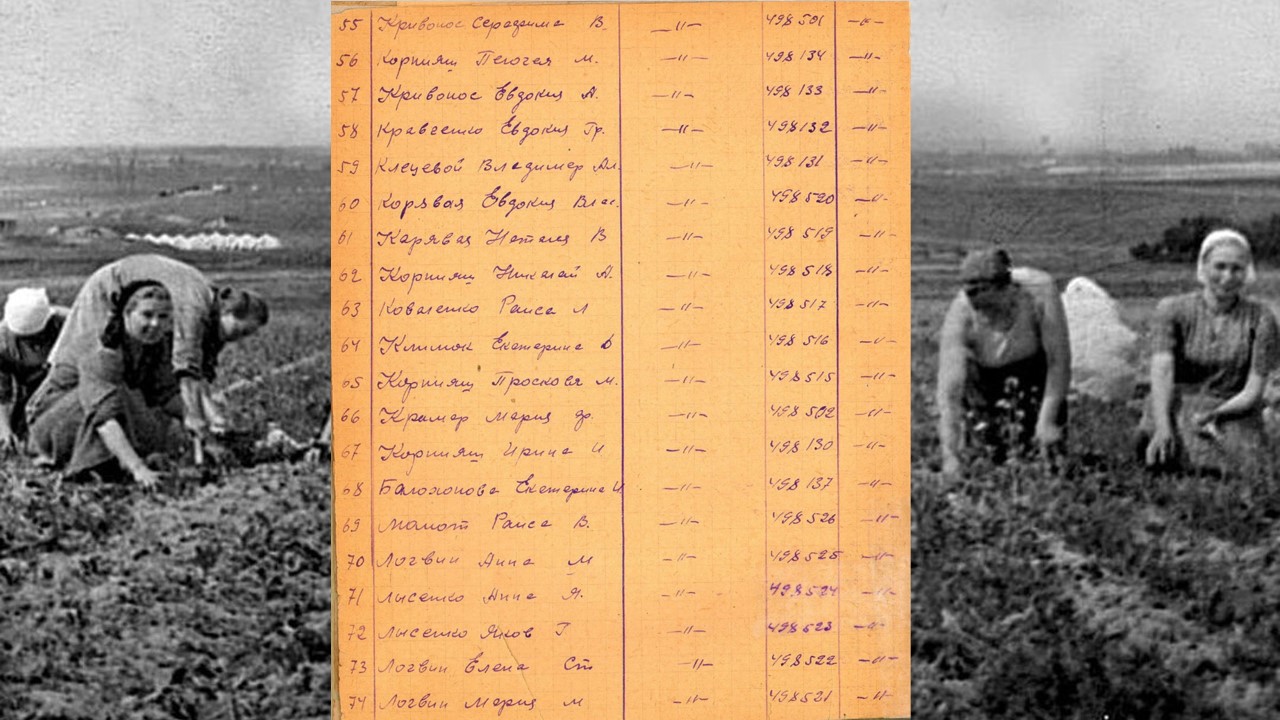 55 Кривонос Серафима В. —"— 498501 —"—
56 Корнияш Пелогея М. —"— 498134 —"—
57 Кривонос Евдокия А. —"— 498133 —"—
58 Кравченко Евдокия Гр. —"— 498132 —"—
59 Клецевой Владимер Ал. —"— 498131 —"—
60 Корявая Евдокия Влас. —"— 498520 —"—
61 Карявая Наталя В —"— 498519 —"—
62 Корнияш Николай А. —"— 498518 —"—
63 Коваленко Раиса Л —"— 498517 —"—
64 Климок Екатерина —"— 498516 —"—
65 Корнияш Просковя М. —"— 498515 —"—
66 Крамар Мария фр. —"— 498502 —"—
67 Корнияш Ирина И —"— 498130 —"—
68 Балохонова Екатерина И —"— 498137 —"—
69 Момот Раиса В. —"— 498526 —"—
70 Логвин Анна М —"— 498525 —"—
71 Лысенко Анна Я. —"— 498524 —"—
72 Лысенко Яков Г —"— 498523 —"—
73 Логвин Елена Ст —"— 498522 —"—
74 Логвин Мария М —"— 498521 —"—